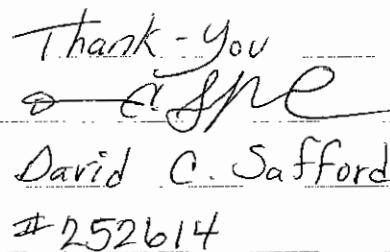 Thank-You
David C. Safford
#252614